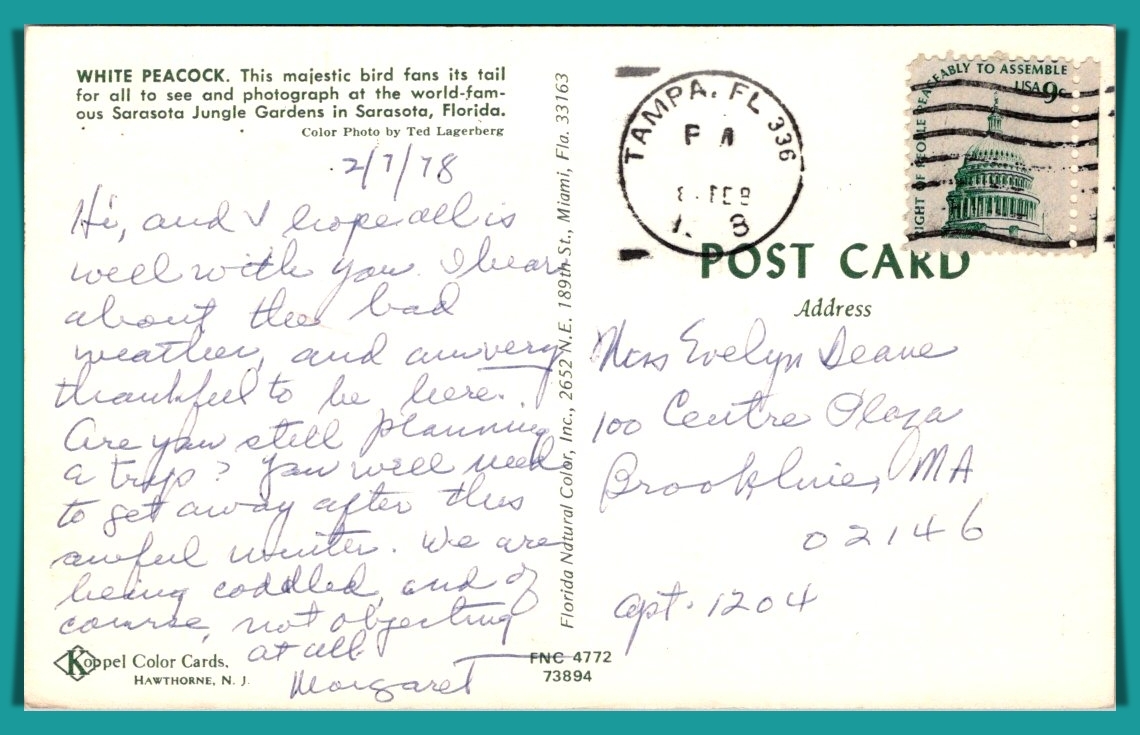 WHITE PEACOCK. This majestic bird fans its tail
for all to see and photograph at the world-fam-
ous Sarasota Jungle Gardens in Sarasota, Florida.
Color Photo by Ted Lagerberg
2/7/78
Hi, and I hope all is
well with you. I hear
about the bad
weather, and am very
thankful to be here.
Are you still planning
a trip? You will need
to get away after this
awful winter. We are
being coddled, and of
course, not objecting
at all.
Margaret
Koppel Color Cards,
HAWTHORNE, N. J.
Florida Natural Color, Inc., 2652 N.E. 189th St., Miami, Fla. 33163
FNC 4772
73894
TAMPA, FL 336
PM
8 FEB
RIGHT OF PEOPLE PEACEABLY TO ASSEMBLE
USA 9c
POST CARD
Address
Miss Evelyn Deane
100 Centre Plaza
Brookline, MA
02146
Apt. 1204